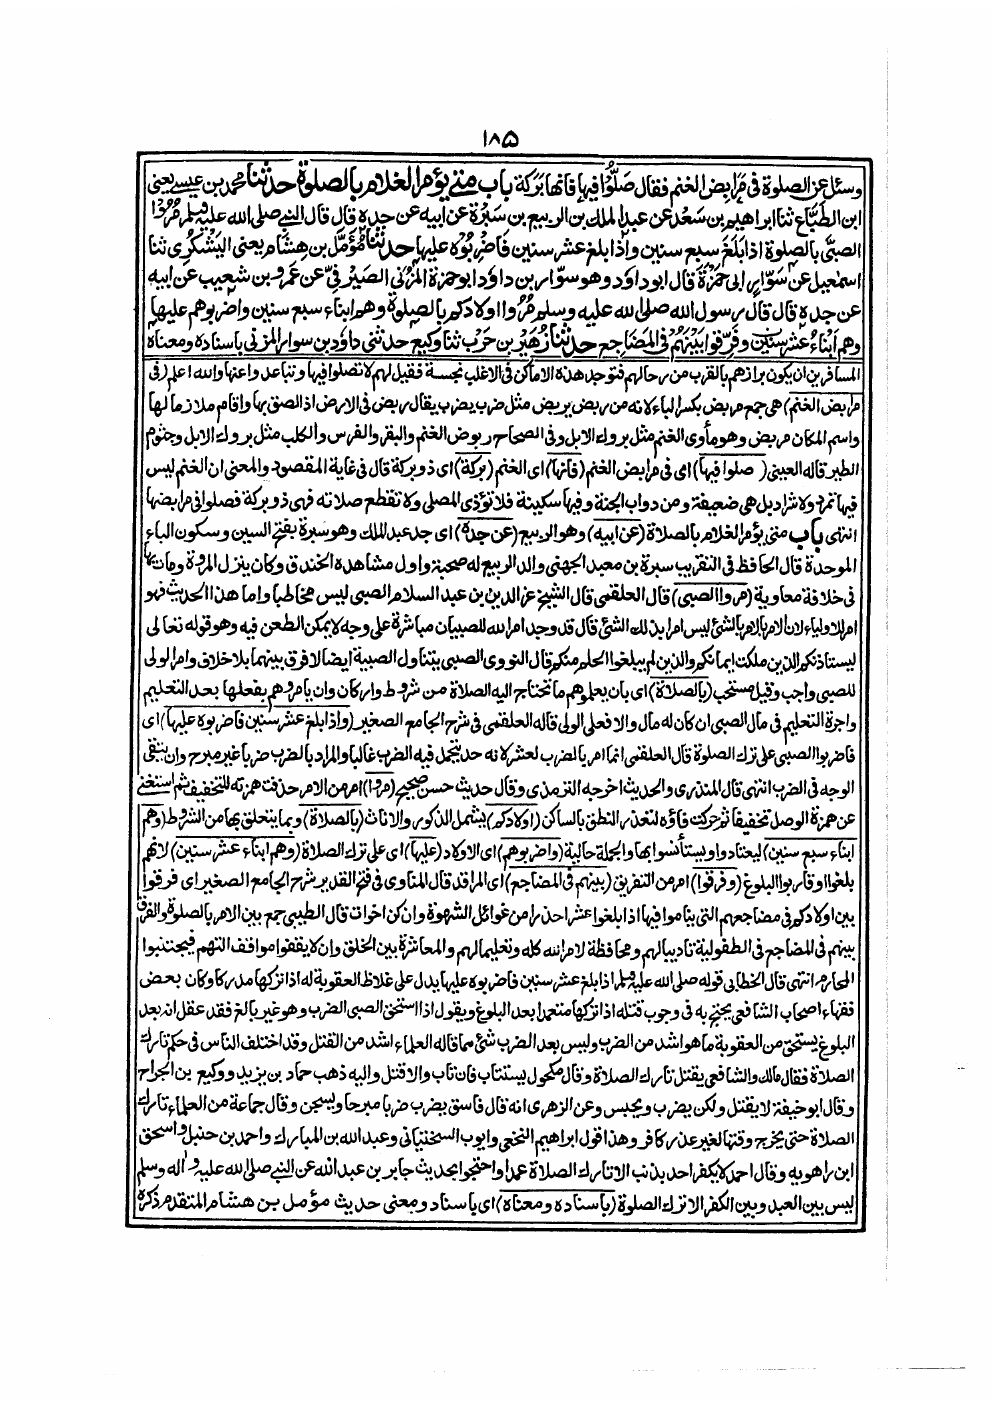 ١٨٥
وسئل عن الصلوة فى مرابض الغنم فقال صلوا فيها فانها بركة باب متى يؤمر الغلام بالصلوة حدثنا محمد بن عيسى يعنى
ابن الطباع ثنا ابراهيم بن سعد عن عبد الملك بن الربيع بن سبرة عن ابيه عن جده قال قال النبى صلى الله عليه وسلم مروا
الصبى بالصلوة اذا بلغ سبع سنين واذا بلغ عشر سنين فاضربوه عليها حدثنا مؤمل بن هشام يعنى اليشكرى ثنا
اسمعيل عن سوار ابى حمزة قال ابو داود وهو سوار بن داود ابو حمزة المزنى الصيرفى عن عمرو بن شعيب عن ابيه
عن جده قال قال رسول الله صلى الله عليه وسلم مروا اولادكم بالصلوة وهم ابناء سبع سنين واضربوهم عليها
وهم ابناء عشر سنين وفرقوا بينهم فى المضاجع حدثنا زهير بن حرب ثنا وكيع حدثنى داود بن سوار المزنى باسناده ومعناه
المسافرين ان يكون برازهم بالقرب من رحالهم فتوجد هذه الاماكن فى الاغلب نجسة فقيل لهم لا تصلوا فيها وتباعدوا عنها والله اعلم (فى
مرابض الغنم) هى جمع مربض بكسر الباء لانه من ربض يربض مثل ضرب يضرب يقال ربض فى الارض اذا لصق بها واقام ملازما لها
واسم المكان مربض وهو مأوى الغنم مثل بروك الابل وفى الصحاح ربوض الغنم والبقر والفرس والكلب مثل بروك الابل وجثوم
الطير قاله العينى (صلوا فيها) اى فى مرابض الغنم (فانها) اى الغنم (بركة) اى ذو بركة قال فى غاية المقصود والمعنى ان الغنم ليس
فيها تمرد ولا شراد بل هى ضعيفة ومن دواب الجنة وفيها سكينة فلا تؤذى المصلى ولا تقطع صلاته فهى ذو بركة فصلوا فى مرابضها
انتهى باب متى يؤمر الغلام بالصلاة (عن ابيه) وهو الربيع (عن جده) اى جد عبد الملك وهو سبرة بفتح السين وسكون الباء
الموحدة قال الحافظ فى التقريب سبرة بن معبد الجهنى والد الربيع له صحبة واول مشاهده الخندق وكان ينزل المروة ومات بها
فى خلافة معاوية (مروا الصبى) قال العلقمى قال الشيخ عز الدين بن عبد السلام الصبى ليس مخاطبا واما هذا الحديث فهو
امر للاولياء لان الامر بالامر بالشئ ليس امرا بذلك الشئ قال قد وجد امر الله للصبيان مباشرة على وجه لا يمكن الطعن فيه وهو قوله تعالى
ليستاذنكم الذين ملكت ايمانكم والذين لم يبلغوا الحلم منكم قال النووى الصبى يتناول الصبية ايضا لا فرق بينهما بلا خلاف وامر الولى
للصبى واجب وقيل مستحب (بالصلاة) اى بان يعلموهم ما تحتاج اليه الصلاة من شروط واركان وان يأمروهم بفعلها بعد التعليم
واجرة التعليم فى مال الصبى ان كان له مال والا فعلى الولى قاله العلقمى فى شرح الجامع الصغير (واذا بلغ عشر سنين فاضربوه عليها) اى
فاضربوا الصبى على ترك الصلوة قال العلقمى انما امر بالضرب لعشر لانه حد يتحمل فيه الضرب غالبا والمراد بالضرب ضربا غير مبرح وان يتقى
الوجه فى الضرب انتهى قال المنذرى والحديث اخرجه الترمذى وقال حديث حسن صحيح (مروا) امر من الامر حذفت همزته للتخفيف ثم استغنى
عن همزة الوصل تخفيفا ثم حركت فاؤه لتعذر النطق بالساكن (اولادكم) يشمل الذكور والاناث (بالصلاة) وبما يتعلق بها من الشروط (وهم
ابناء سبع سنين) ليعتادوا ويستأنسوا بها والجملة حالية (واضربوهم) اى الاولاد (عليها) اى على ترك الصلاة (وهم ابناء عشر سنين) لانهم
بلغوا او قاربوا البلوغ (وفرقوا) امر من التفريق (بينهم فى المضاجع) اى المراقد قال المناوى فى فتح القدير شرح الجامع الصغير اى فرقوا
بين اولادكم فى مضاجعهم التى يناموا فيها اذا بلغوا عشرا حذرا من غوائل الشهوة وان كن اخوات قال الطيبى جمع بين الامر بالصلوة والفرق
بينهم فى المضاجع فى الطفولية تاديبا لهم ومحافظة لامر الله كله وتعليما لهم والمعاشرة بين الخلق وان لا يقفوا مواقف التهم فيجتنبوا
المحارم انتهى قال الخطابى قوله صلى الله عليه وسلم اذا بلغ عشر سنين فاضربوه عليها يدل على غلاظ العقوبة له اذا تركها مدركا وكان بعض
فقهاء اصحاب الشافعى يحتج به فى وجوب قتله اذا تركها متعمدا بعد البلوغ ويقول اذا استحق الصبى الضرب وهو غير بالغ فقد عقل انه بعد
البلوغ يستحق من العقوبة ما هو اشد من الضرب وليس بعد الضرب شئ مما قاله العلماء اشد من القتل وقد اختلف الناس فى حكم تارك
الصلاة فقال مالك والشافعى يقتل تارك الصلاة وقال مكحول يستتاب فان تاب والا قتل واليه ذهب حماد بن يزيد ووكيع بن الجراح
وقال ابو حنيفة لا يقتل ولكن يضرب ويحبس وعن الزهرى انه قال فاسق يضرب ضربا مبرحا ويسجن وقال جماعة من العلماء تارك
الصلاة حتى يخرج وقتها لغير عذر كافر وهذا قول ابراهيم النخعى وايوب السختيانى وعبد الله بن المبارك واحمد بن حنبل واسحق
ابن راهويه وقال احمد لا يكفر احد بذنب الا تارك الصلاة عمدا واحتجوا بحديث جابر بن عبد الله عن النبى صلى الله عليه وآله وسلم
ليس بين العبد وبين الكفر الا ترك الصلوة (باسناده ومعناه) اى باسناد ومعنى حديث مؤمل بن هشام المتقدم ذكره